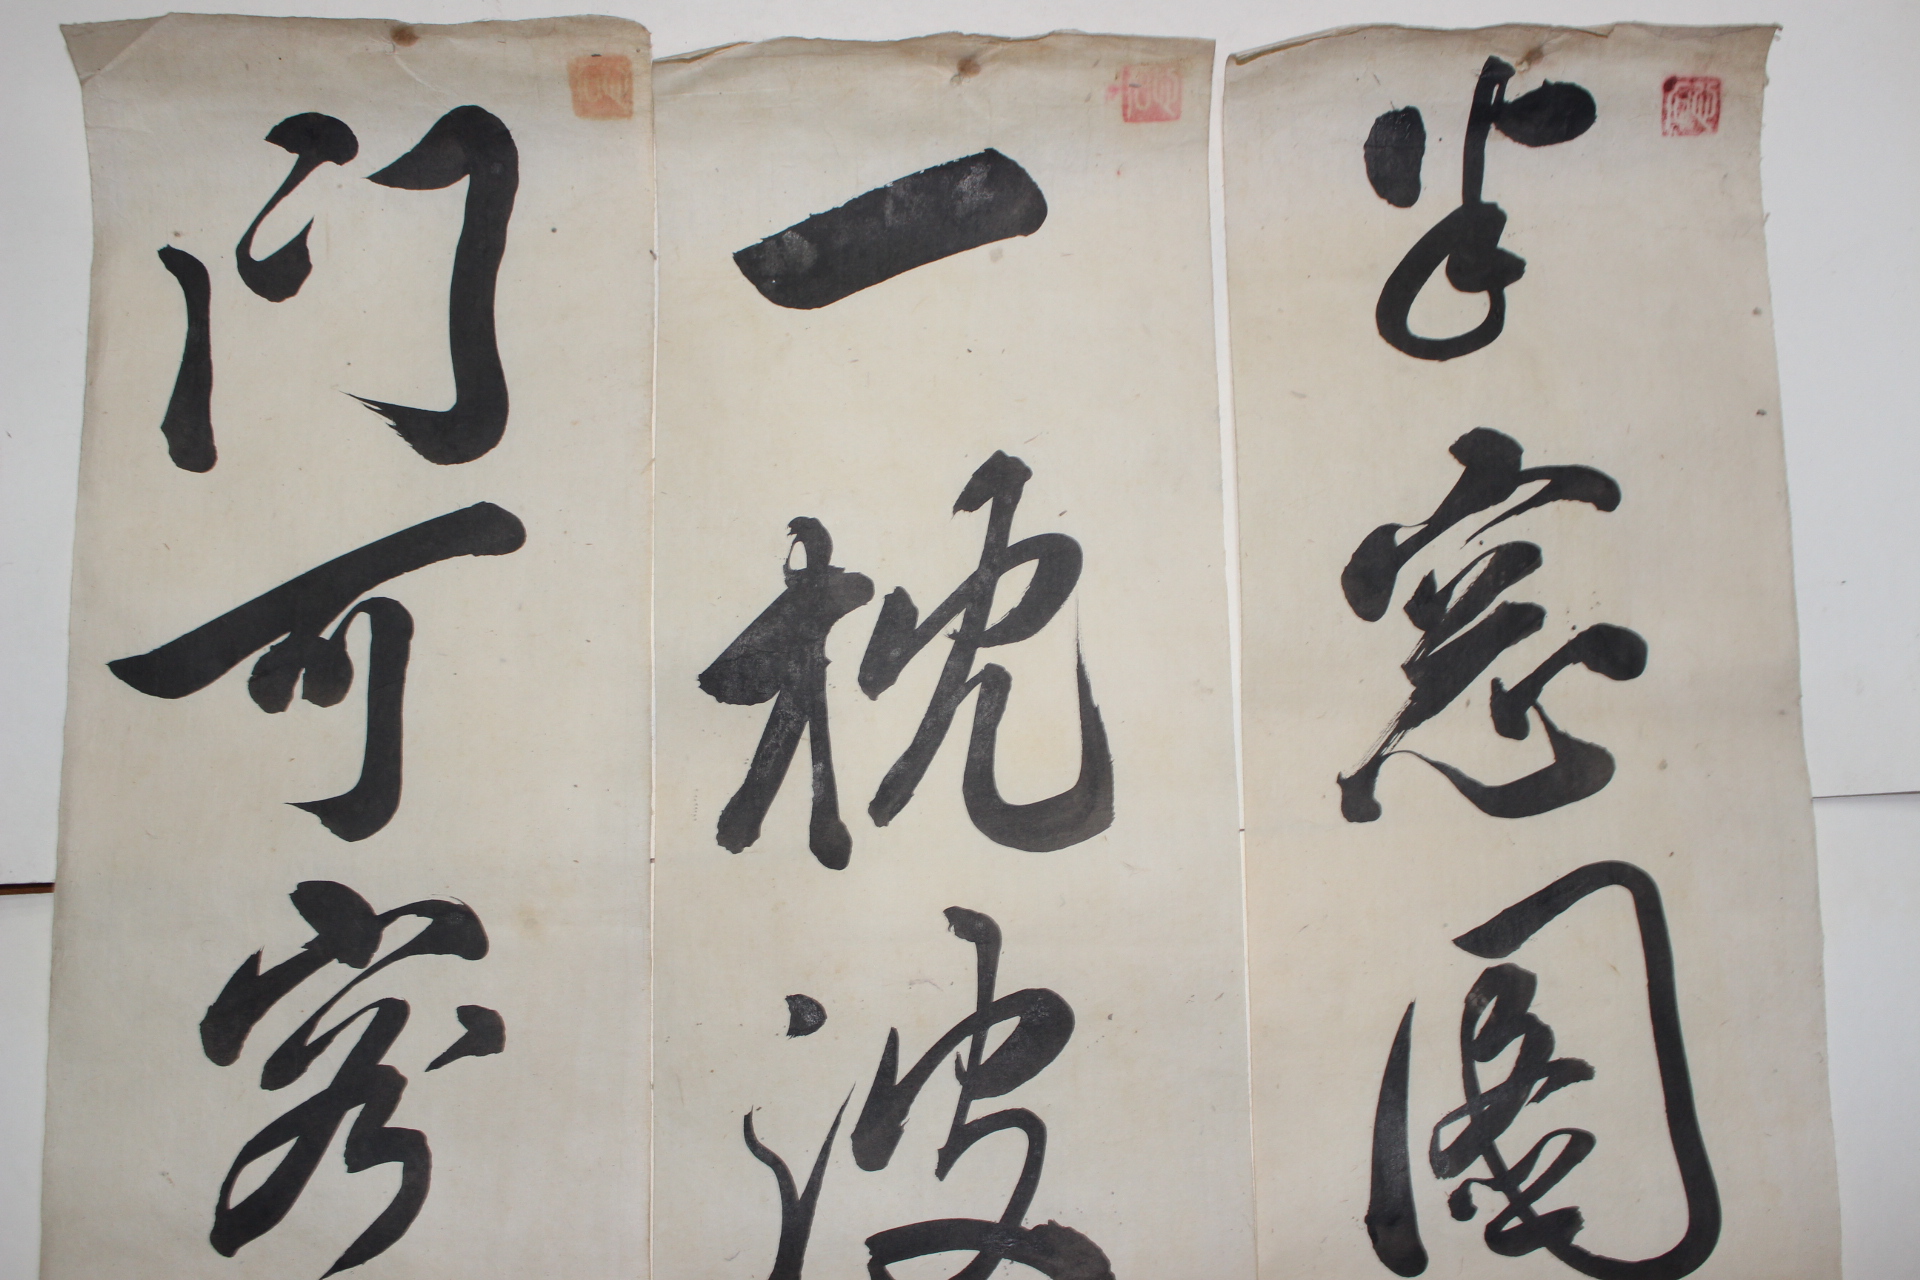 半窓圖
一枕波
門可容